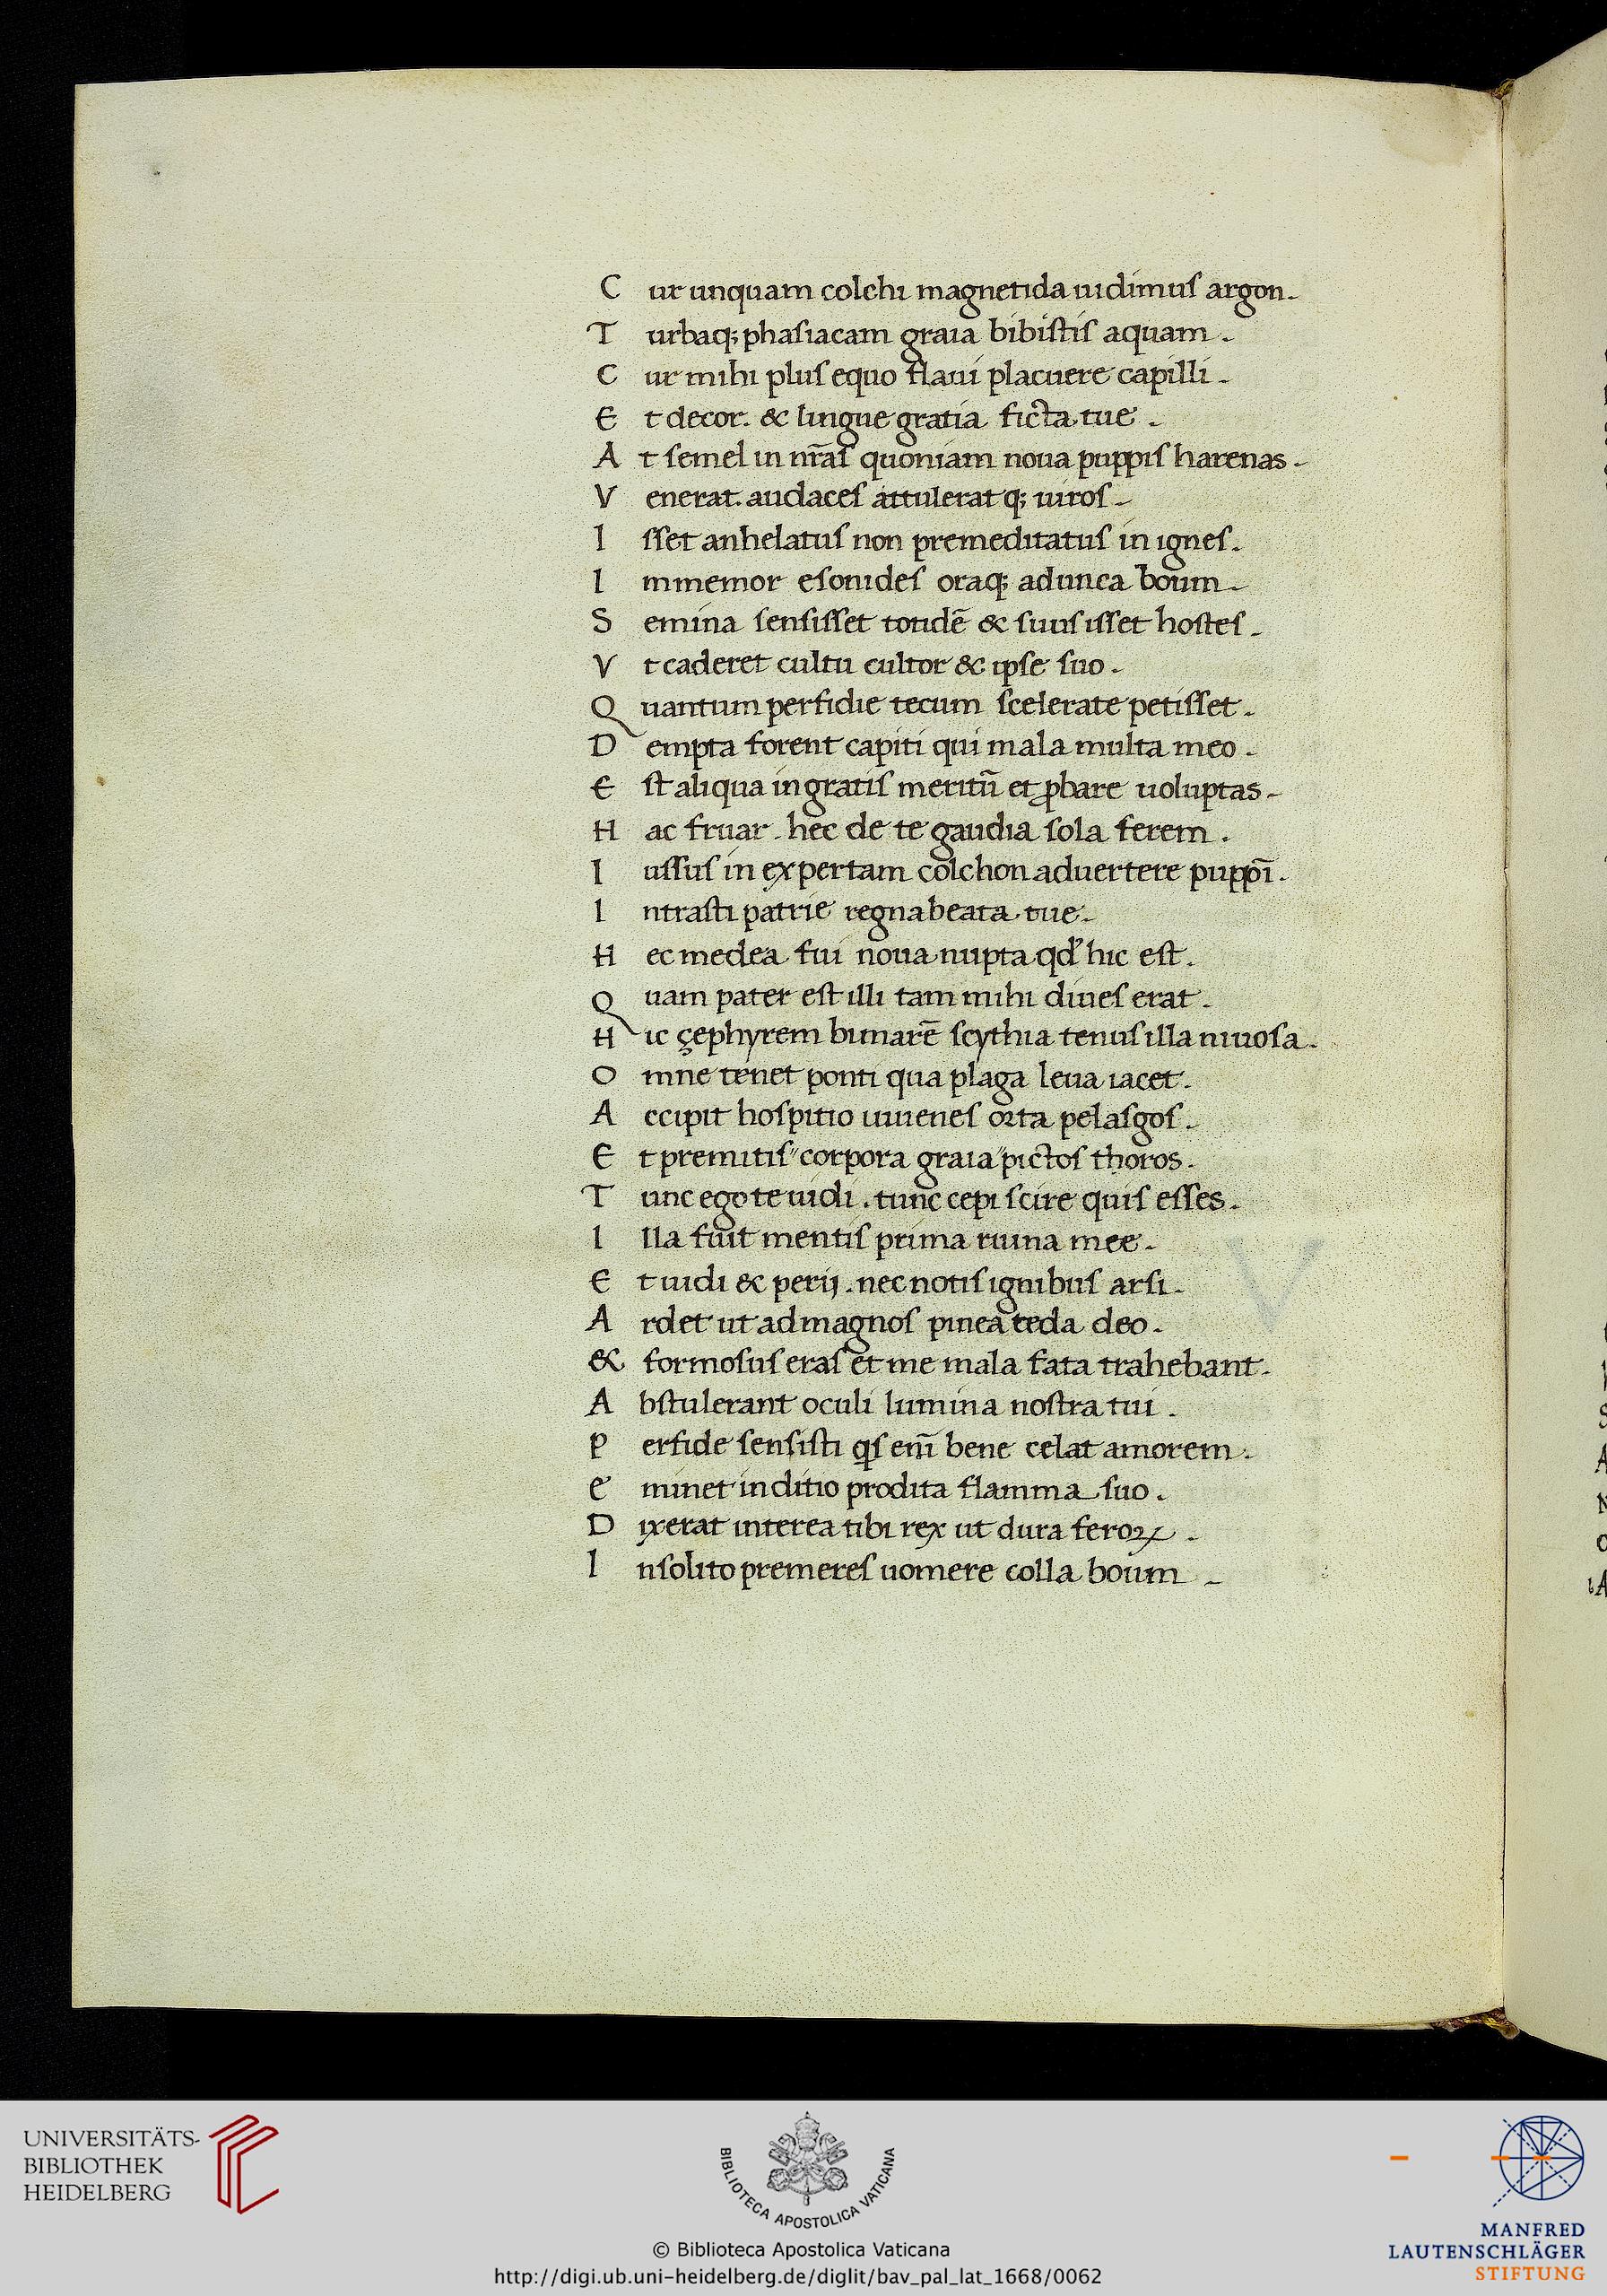 C ur unquam colchi magnetida uidimus argon.
T urbaq; phasiacam graia bibistis aquam.
C ur mihi plus equo flaui placuere capilli.
E t decor. & lingue gratia ficta tue.
A t semel in nr̄as quoniam noua puppis harenas.
V enerat. audaces attulerat q; uiros.
I sset anhelatus non premeditatus in ignes.
I mmemor esonides oraq; adunca boum.
S emina sensisset totidē & suus isset hostes.
V t caderet cultu cultor & ipse suo.
Q uantum perfidie tecum scelerate petisset.
D empta forent capiti qui mala multa meo.
E st aliqua ingratis meritū et ꝓbare uoluptas.
H ac fruar. hec de te gaudia sola ferem.
I ussus in expertam colchon aduertere puppī.
I ntrasti patrie regna beata tue.
H ec medea fui noua nupta qd' hic est.
Q uam pater est illi tam mihi diues erat.
H ic çephyrem bimarē scythia tenus illa niuosa.
O mne tenet ponti qua plaga leua iacet.
A ccipit hospitio iuuenes orta pelasgos.
E t premitis" corpora graia" pictos thoros.
T unc ego te uidi. tunc cepi scire quis esses.
I lla fuit mentis prima ruina mee.
E t uidi & perij. nec notis ignibus arsi.
A rdet ut ad magnos pinea teda deo.
& formosus eras et me mala fata trahebant.
A bstulerant oculi lumina nostra tui.
P erfide sensisti qs eni᷑ bene celat amorem.
E minet inditio prodita flamma suo.
D ixerat interea tibi rex ut dura feroꝝ.
I nsolito premeres uomere colla boum.
UNIVERSITÄTS-
BIBLIOTHEK
HEIDELBERG
BIBLIOTECA APOSTOLICA VATICANA
© Biblioteca Apostolica Vaticana
http://digi.ub.uni-heidelberg.de/diglit/bav_pal_lat_1668/0062
MANFRED
LAUTENSCHLÄGER
STIFTUNG